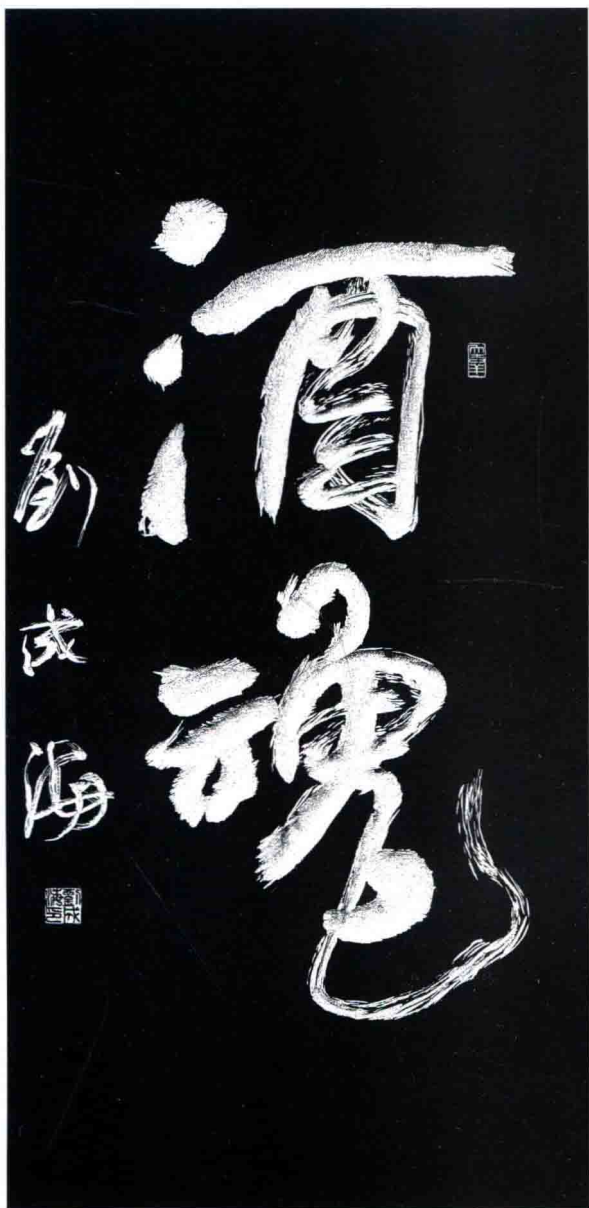 酒魂
劉成海